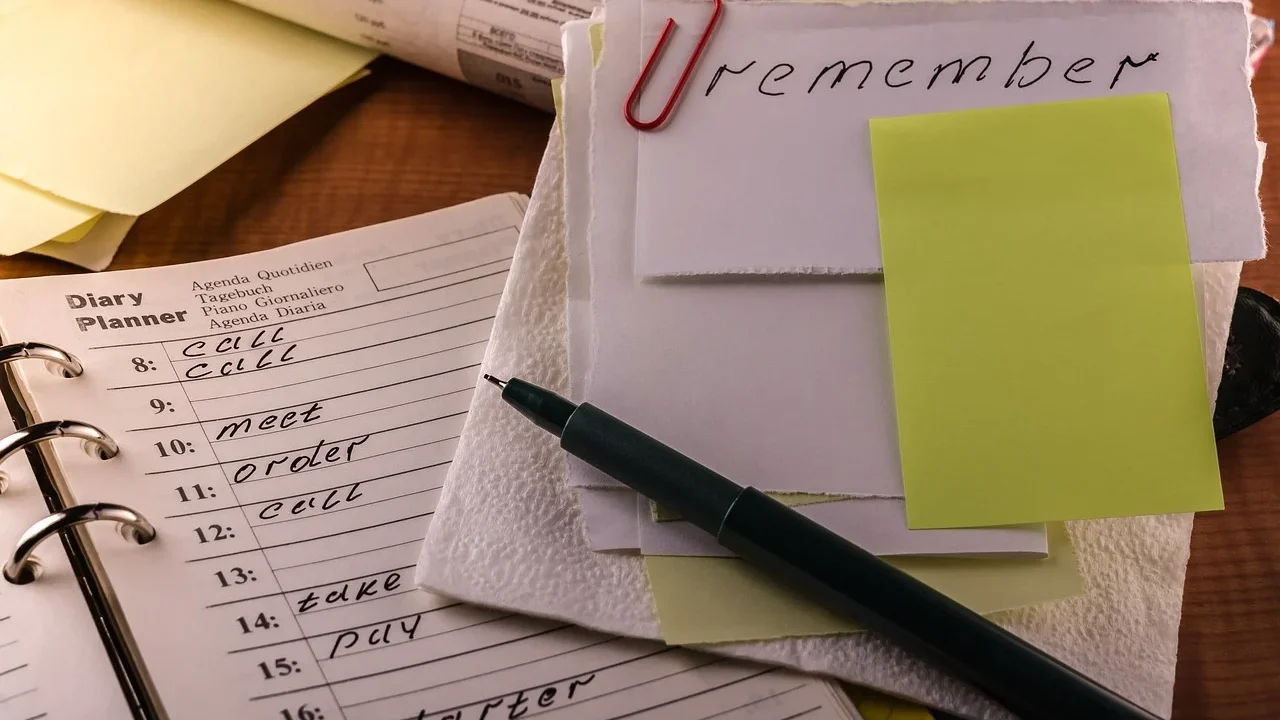 remember
Diary
Planner
Agenda Quotidien
Tagebuch
Piano Giornaliero
Agenda Diaria
8: call
call
9:
10: meet
11: order
12: call
13:
14: take
15: pay
16: